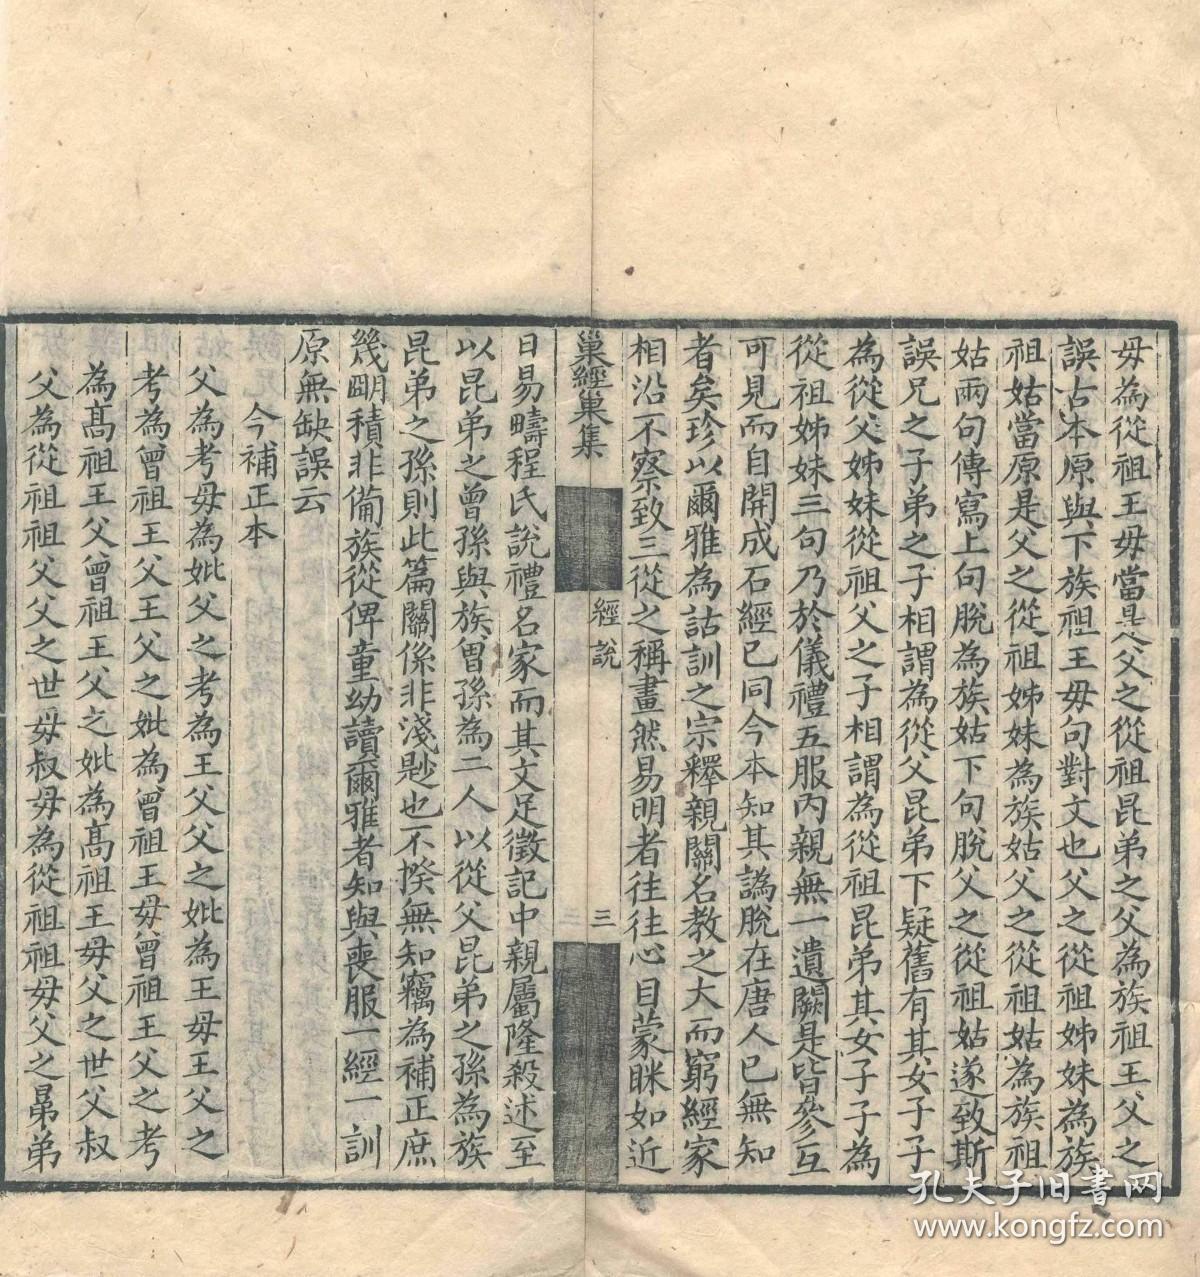 毋為從祖王毋當是父之從祖昆弟之父為族祖王父之
誤古本原與下族祖王毋句對文也父之從祖姊妹為族
祖姑當原是父之從祖姊妹為族姑父之從祖姑為族祖
姑兩句傳寫上句脫為族姑下句脫父之從祖姑遂致斯
誤兄之子弟之子相謂為從父昆弟下疑舊有其女子子
為從父姊妹從祖父之子相謂為從祖昆弟其女子子為
從祖姊妹三句乃於儀禮五服內親無一遺闕是皆參互
可見而自開成石經已同今本知其譌脫在唐人已無知
者矣珍以爾雅為詁訓之宗釋親關名教之大而窮經家
相沿不察致三從之稱畫然易明者往往心目蒙眯如近
巢經巢集
經說
三
日易疇程氏說禮名家而其文足徵記中親屬隆殺述至
以昆弟之曾孫與族曾孫為二人以從父昆弟之孫為族
昆弟之孫則此篇關係非淺尟也不揆無知竊為補正庶
幾朙積非備族從俾童幼讀爾雅者知與喪服一經一訓
原無缺誤云
今補正本
父為考毋為妣父之考為王父父之妣為王毋王父之
考為曾祖王父王父之妣為曾祖王毋曾祖王父之考
為髙祖王父曾祖王父之妣為髙祖王毋父之世父叔
父為從祖祖父父之世毋叔毋為從祖祖毋父之晜弟
孔夫子旧书网
www.kongfz.com